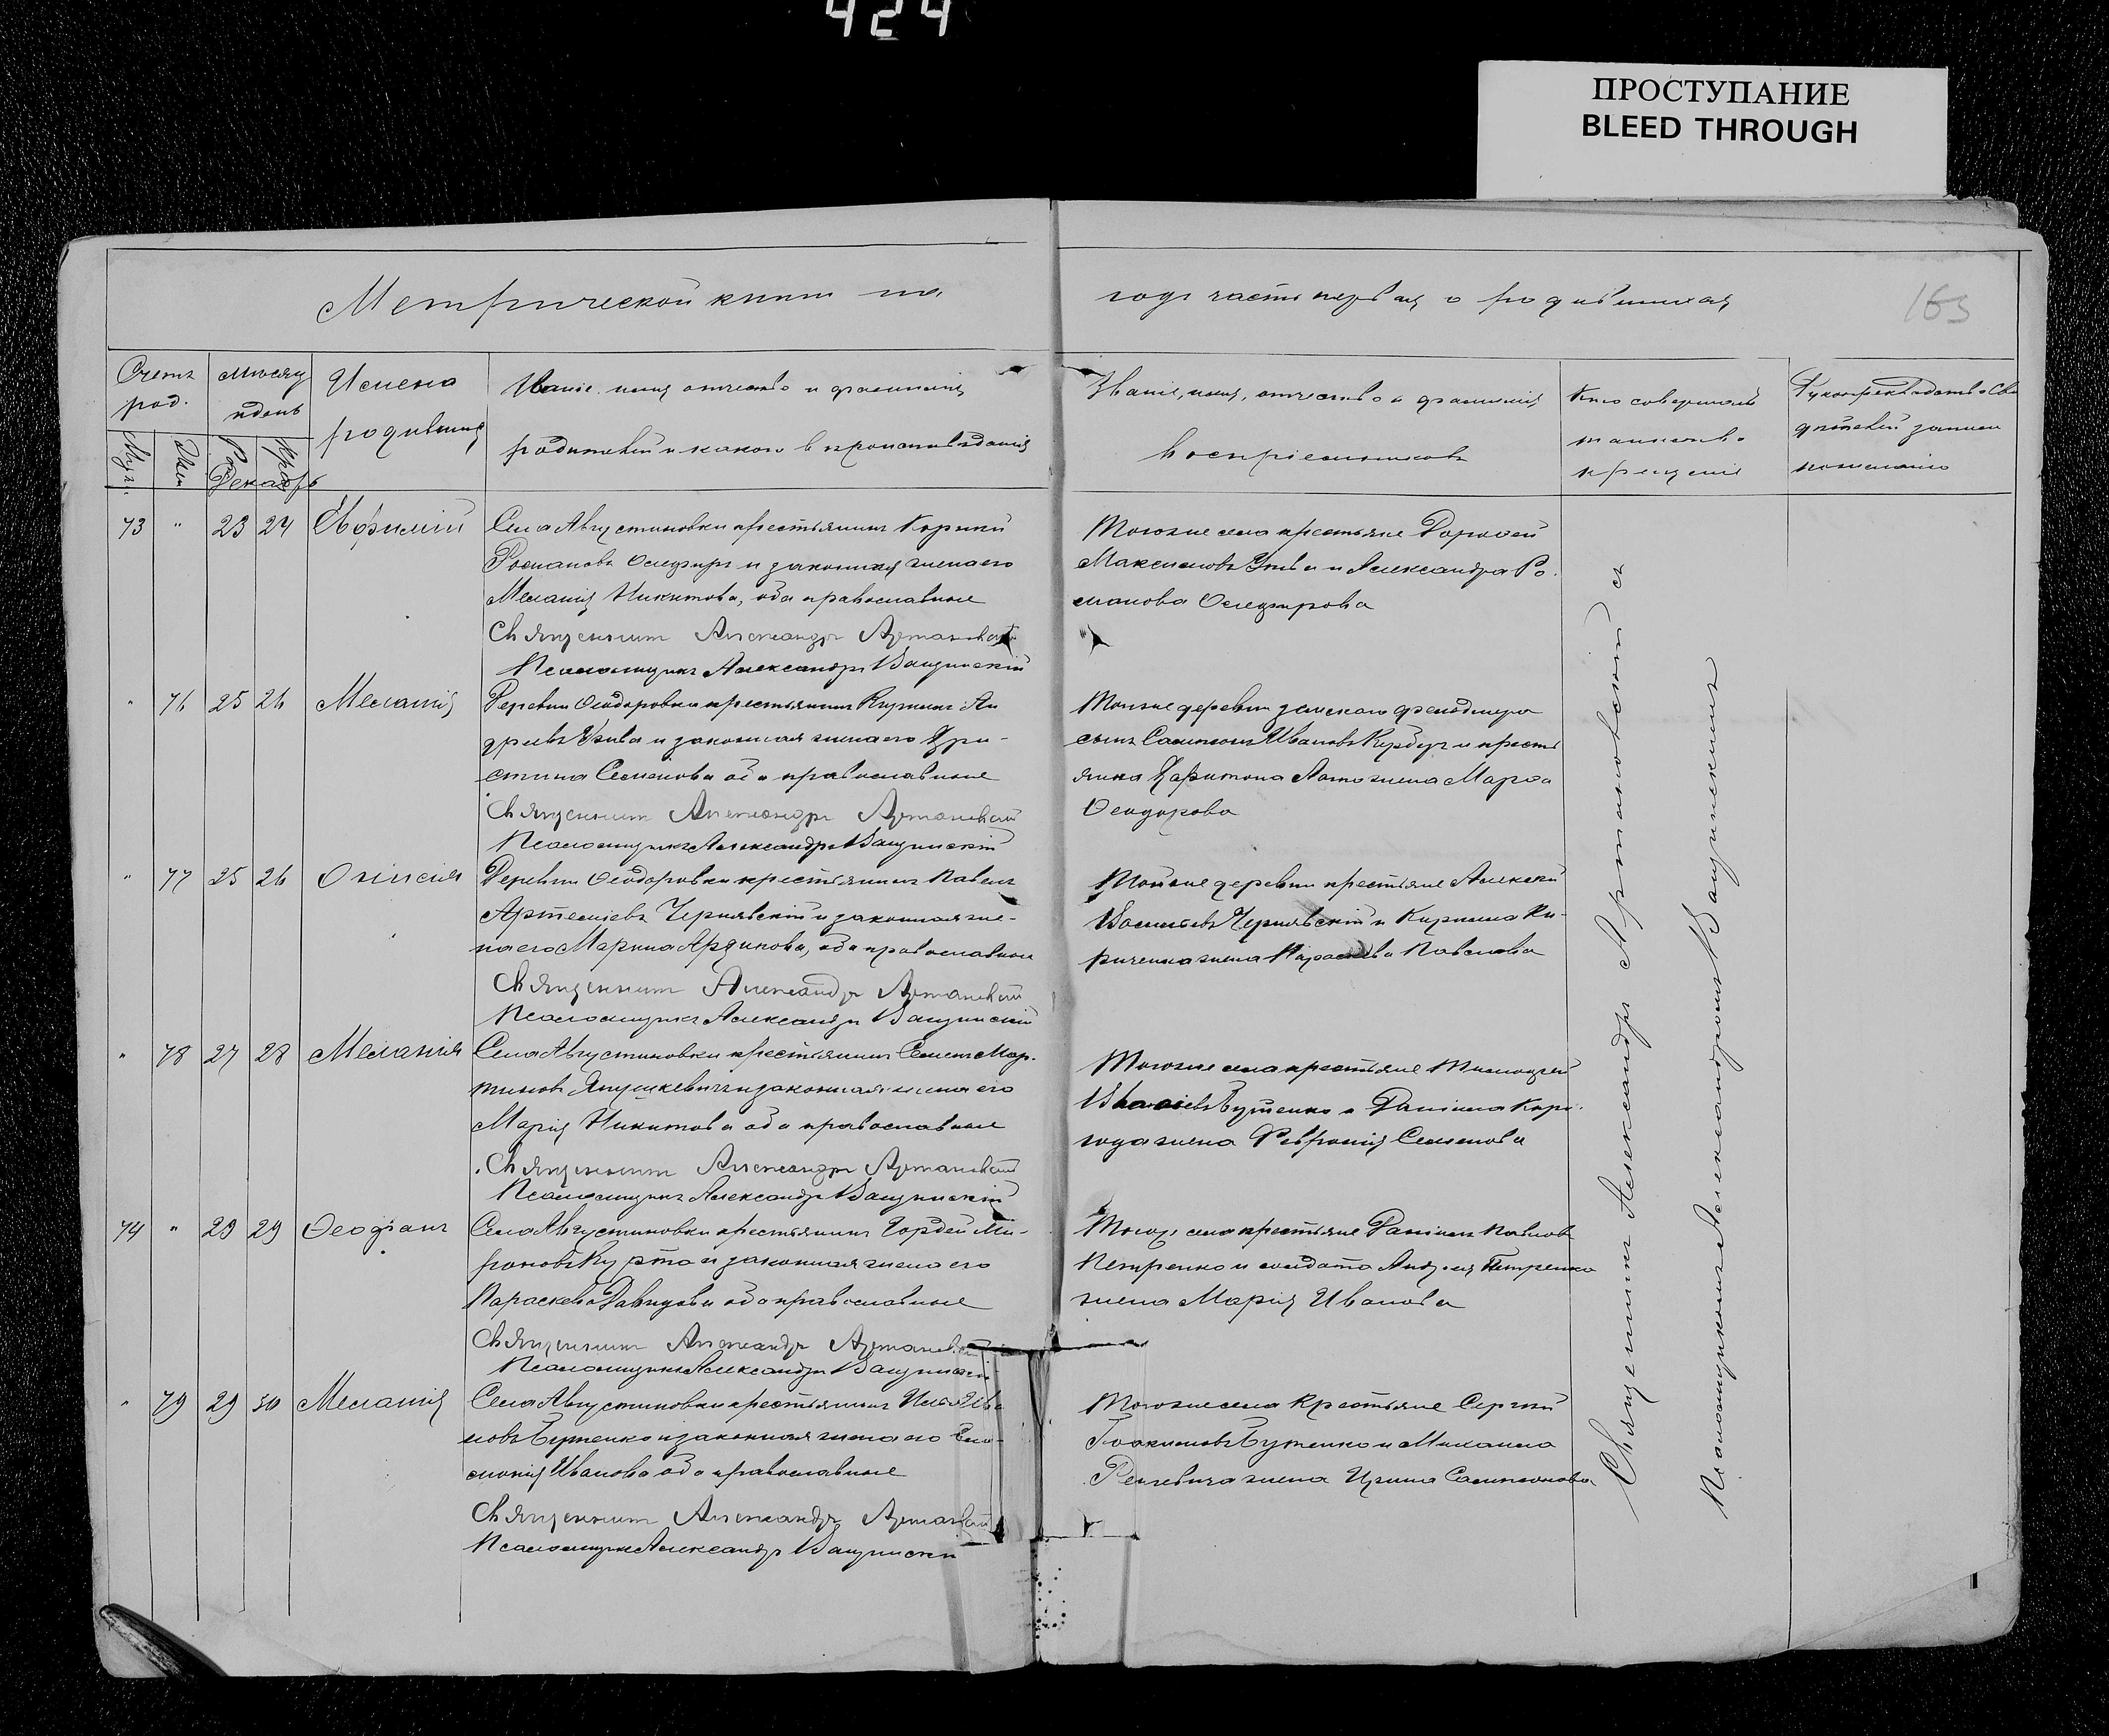 424
ПРОСТУПАНИЕ
BLEED THROUGH
Метрической книги на
годъ часть первая о родившихся
163
Счетъ род.
Месяцъ и день
Имена родившихся
Званіе, имя, отчество и фамилія
родителей и какого вѣроисповѣданія
Званіе, имя, отчество и фамилія
воспріемниковъ
Кто совершалъ
таинство
крещенія
Декабрь
73 " 23 24 Евфимій
Села Августиновки крестьянинъ
Романовъ и законная жена его
Меланія Никитова, оба православные
Священникъ Александръ Артановскій
Псаломщикъ Александръ Ващинскій
Того же села крестьяне Дорофей
Максимовъ и Александра Ро-
манова
" 76 25 26 Меланія
Деревни Ѳеодоровки крестьянинъ Ан
дреевъ и законная жена его Хри-
стина Семенова оба православные
Священникъ Александръ Артановскій
Псаломщикъ Александръ Ващинскій
Той же деревни
сынъ Самсонъ Ивановъ и кресть
янина Харитона жена Марѳа
Ѳеодорова
" 77 25 26
Деревни Ѳеодоровки крестьянинъ Павелъ
Артеміевъ Чернявскій и законная же-
на его Марина оба православные
Священникъ Александръ Артановскій
Псаломщикъ Александръ Ващинскій
Той же деревни крестьяне Алексѣй
Васильевъ Чернявскій и Кирилла Ки-
риченка жена Параскева Павлова
" 78 27 28 Меланія
Села Августиновки крестьянинъ Семенъ Мар-
тиновъ Янушкевичъ и законная жена его
Марія Никитова оба православные
Священникъ Александръ Артановскій
Псаломщикъ Александръ Ващинскій
Того же села крестьяне Тимоѳей
Бутенко и Даніила
жена Февронія Семенова
74 " 29 29 Ѳеофанъ
Села Августиновки крестьянинъ Гордей Ми-
роновъ и законная жена его
Параскева Давидова оба православные
Священникъ Александръ Артановскій
Псаломщикъ Александръ Ващинскій
Того же села крестьяне Даніилъ Павловъ
Петренко и солдата Андрея Петренка
жена Марія Иванова
" 79 29 30 Меланія
Села Августиновки крестьянинъ Ива
новъ Бутенко и законная жена его
Иванова оба православные
Священникъ Александръ Артановскій
Псаломщикъ Александръ Ващинскій
Того же села крестьяне Сергѣй
Іоакимовъ Бутенко и Михаила
жена Ирина Самсонова
Священникъ Александръ Артановскій съ
Псаломщикомъ Александромъ Ващинскимъ